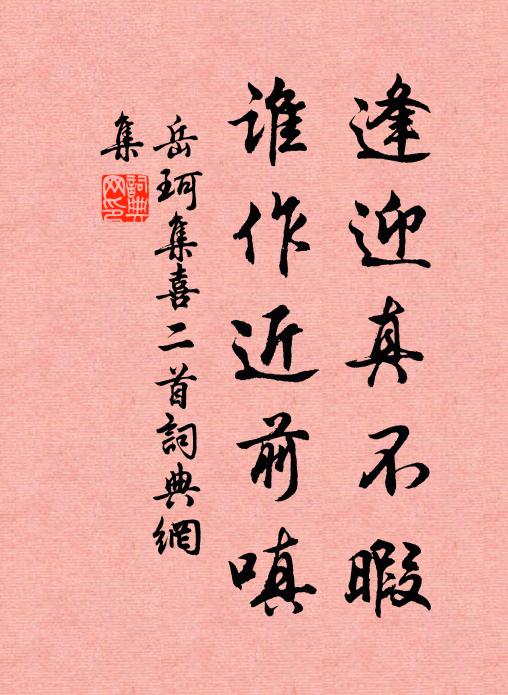 逢迎真不暇
谁作近前嗔
岳珂集喜二首詞典網
集
詞典
网印